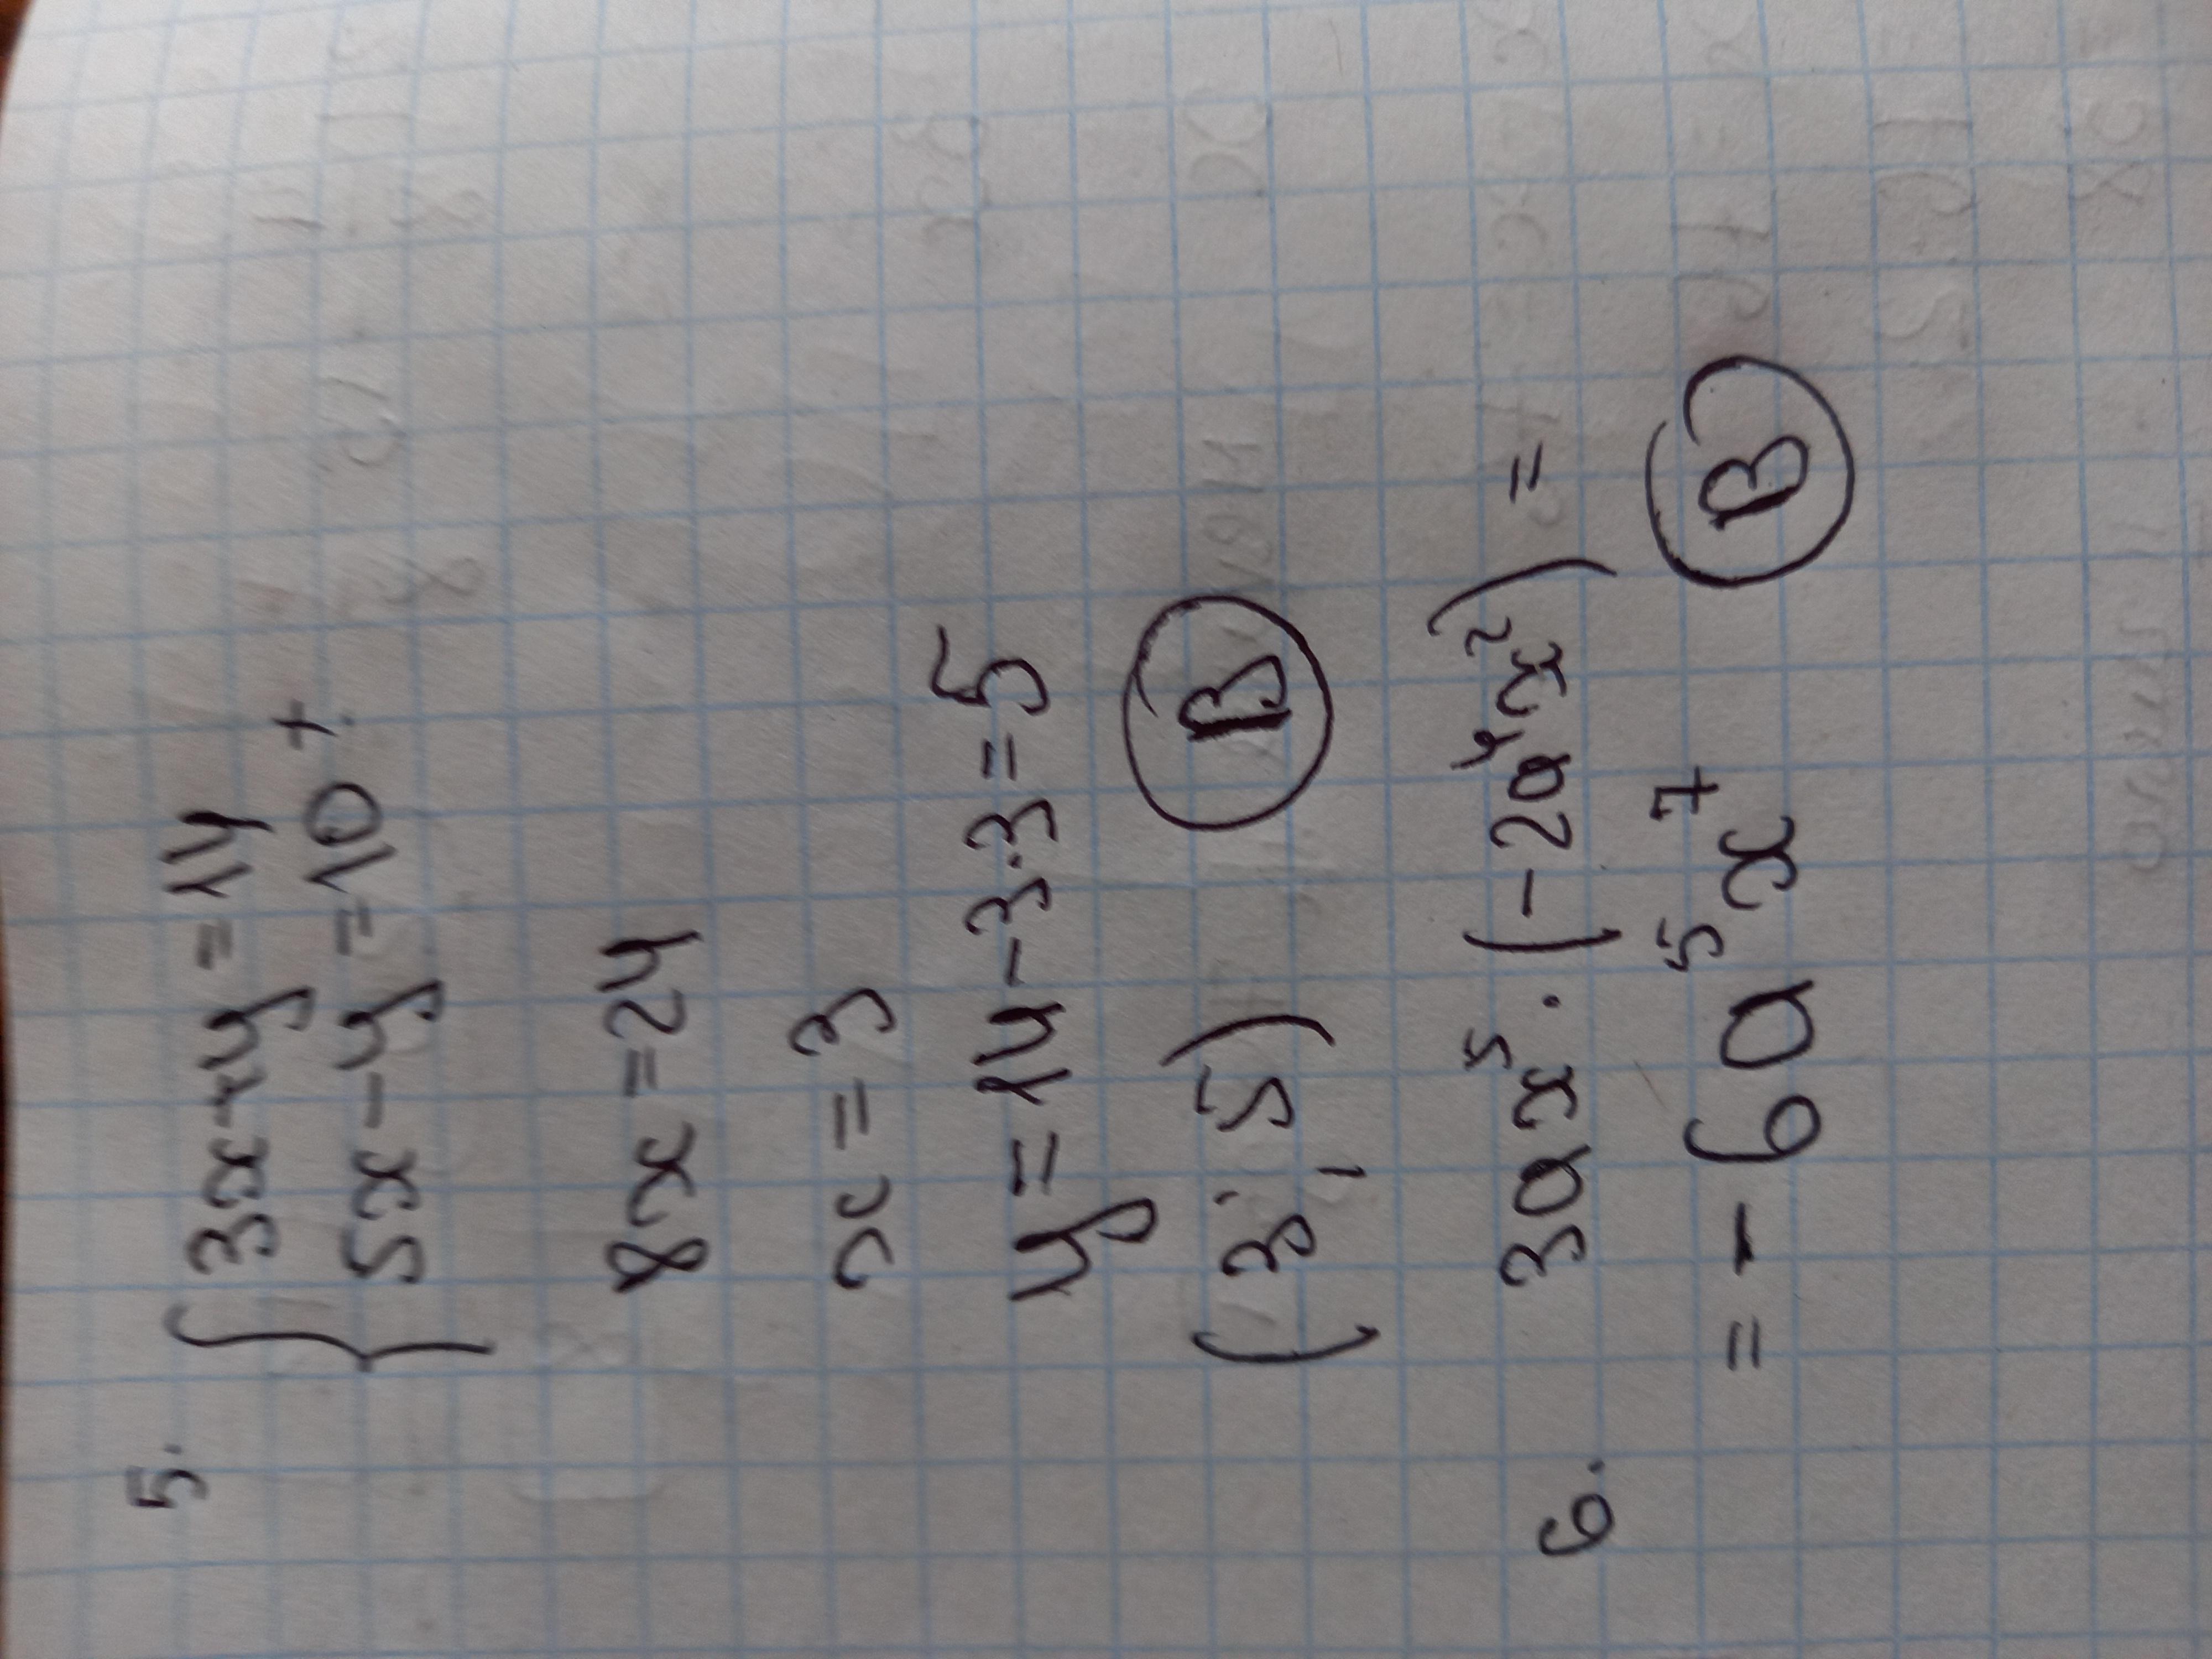 5. { 3x+y=14
5x-y=10 +
8x=24
x=3
y=14-3·3=5
(3; 5) В
6. 3ax⁵·(-2a⁴x²)=
=-6a⁵x⁷ В